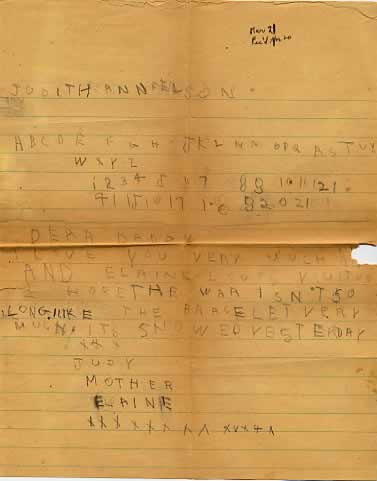 Mar 21
Rec'd Apr 20
JUDITH ANN NELSON
ABCDE F G H IJKL MN OPQ RSTUV
WXYZ
1 2 3 4 5 6 7 8 9 10 11 12 1
DEAR DADDY
I LOVE YOU VERY MUCH
AND ELAINE LOVES YOU TOO
I HOPE THE WAR ISN'T SO
LONG. I LIKE THE BRACELET VERY
MUCH. IT SNOWED YESTERDAY
X X X
JUDY
MOTHER
ELAINE
X X X X X X X X X X X X